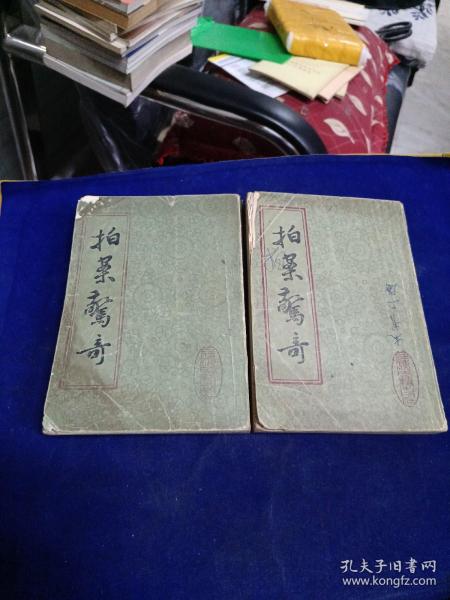 拍案驚奇
拍案驚奇
孔夫子旧书网
www.kongfz.com